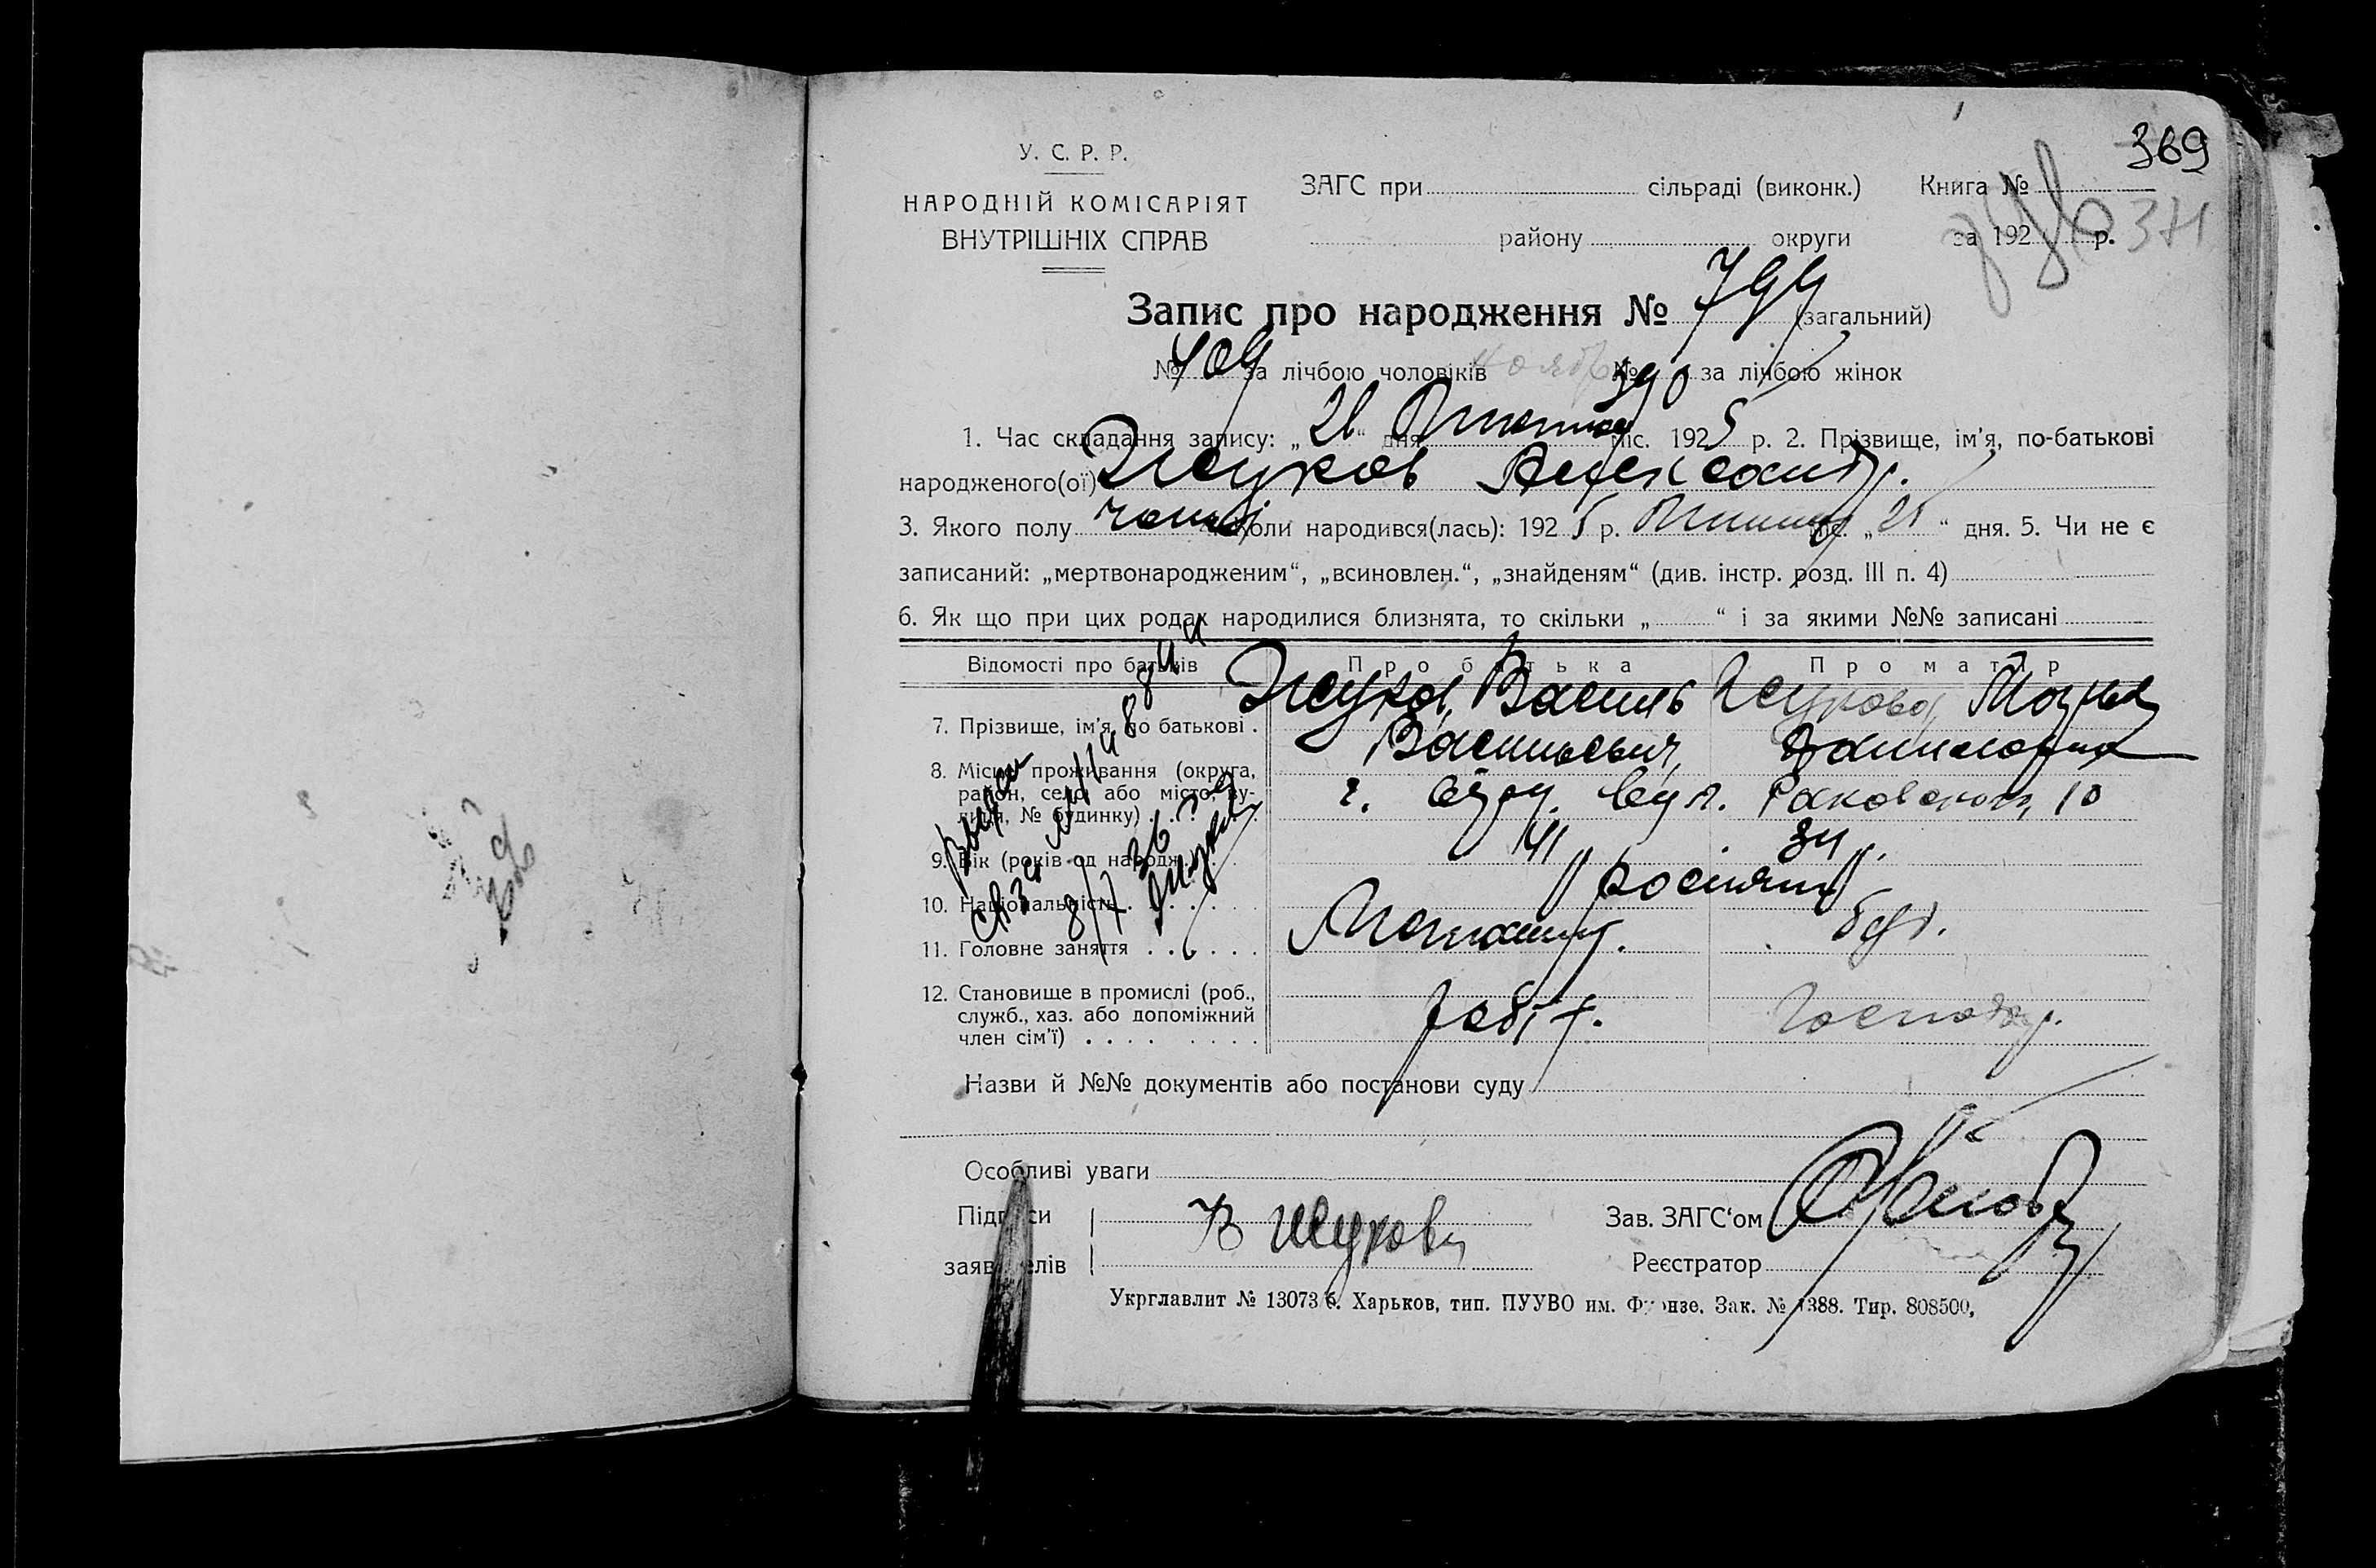 369
У. С. Р. Р.
НАРОДНІЙ КОМІСАРІЯТ
ВНУТРІШНІХ СПРАВ
ЗАГС при сільраді (виконк.) Книга №
району округи за 192 р. 371
Запис про народження № 799 (загальний)
№ 409 за лічбою чоловіків № 390 за лічбою жінок
1. Час складання запису: „ “ дня міс. 1925 р. 2. Прізвище, ім’я, по-батькові
народженого(ої) Жуков Александр.
3. Якого полу чолов 4. Коли народився(лась): 1925 р. міс. „25“ дня. 5. Чи не є
записаний: „мертвонародженим“, „всиновлен.“, „знайденям“ (див. інстр. розд. III п. 4)
6. Як що при цих родах народилися близнята, то скільки „ “ і за якими №№ записані
Відомості про батьків Про батька Про матір
7. Прізвище, ім’я, по батькові . Жуков, Василь Жукова,
Васильевич,
8. Місце проживання (округа,
район, село або місто, ву-
лиця, № будинку) г. вул. Раковского, 10
9. Вік (років од народж.) 41 34
10. Національність росіяни
11. Головне заняття
12. Становище в промислі (роб.,
служб., хаз. або допоміжний
член сім’ї) робіт. господ.
Назви й №№ документів або постанови суду
Особливі уваги
Підписи
заявителів В Жуков
Зав. ЗАГС‘ом
Реєстратор
Укрглавлит № 13073 б. Харьков, тип. ПУУВО им. Фрунзе. Зак. № 1388. Тир. 808500,